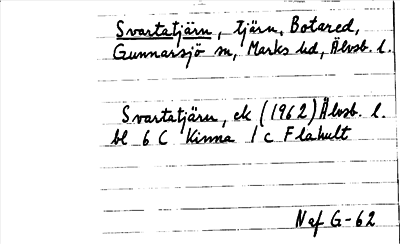 Svartatjärn, tjärn, Botared,
Gunnarsjö sn, Marks hd, Älvsb. l.
Svartatjärn, ek (1962) Älvsb. l.
bl 6 C Kinna 1 c Flahult
Naf G-62